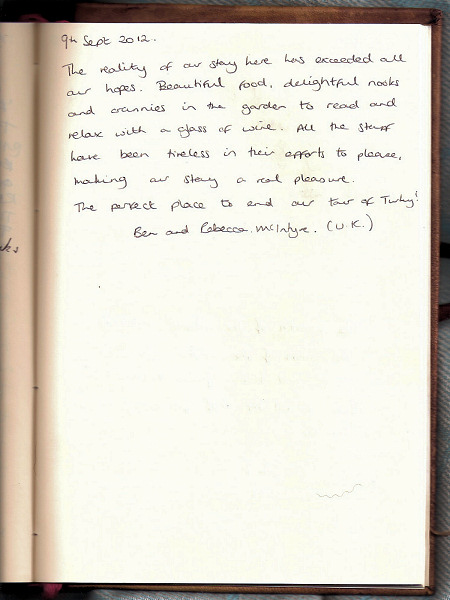 9th Sept 2012.
The reality of our stay here has exceeded all
our hopes. Beautiful food, delightful nooks
and crannies in the garden to read and
relax with a glass of wine. All the staff
have been tireless in their efforts to please,
making our stay a real pleasure.
The perfect place to end our tour of Turkey!
Ben and Rebecca McIntyre. (U.K.)